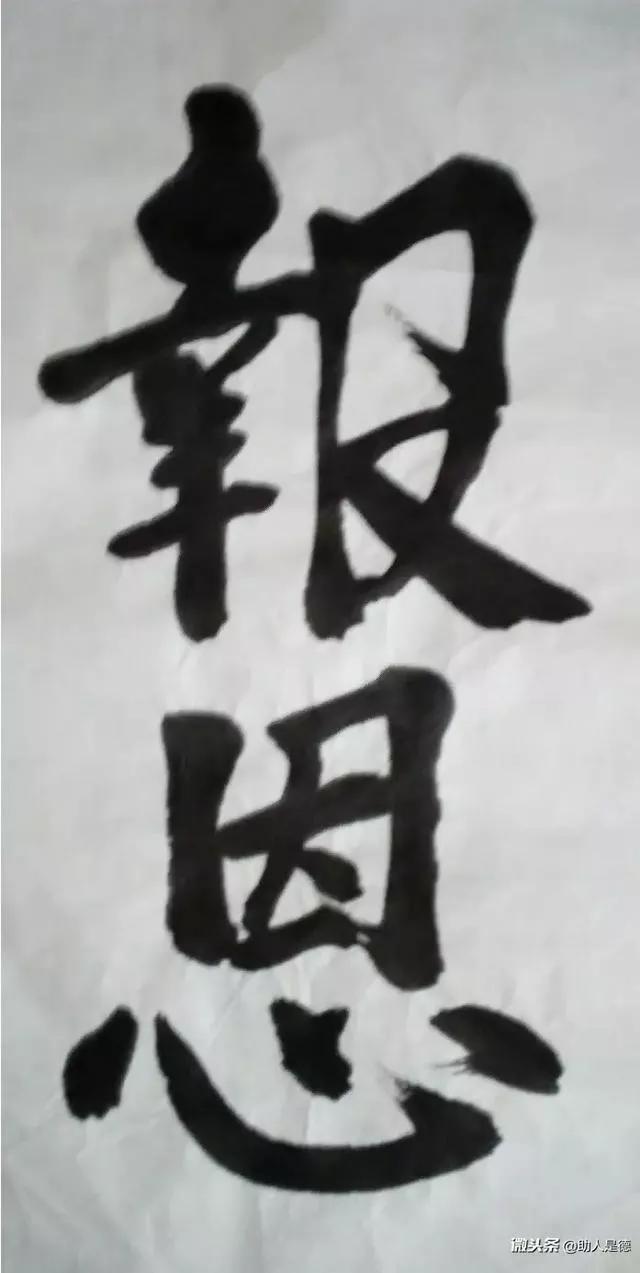 報恩
微头条 @助人是德